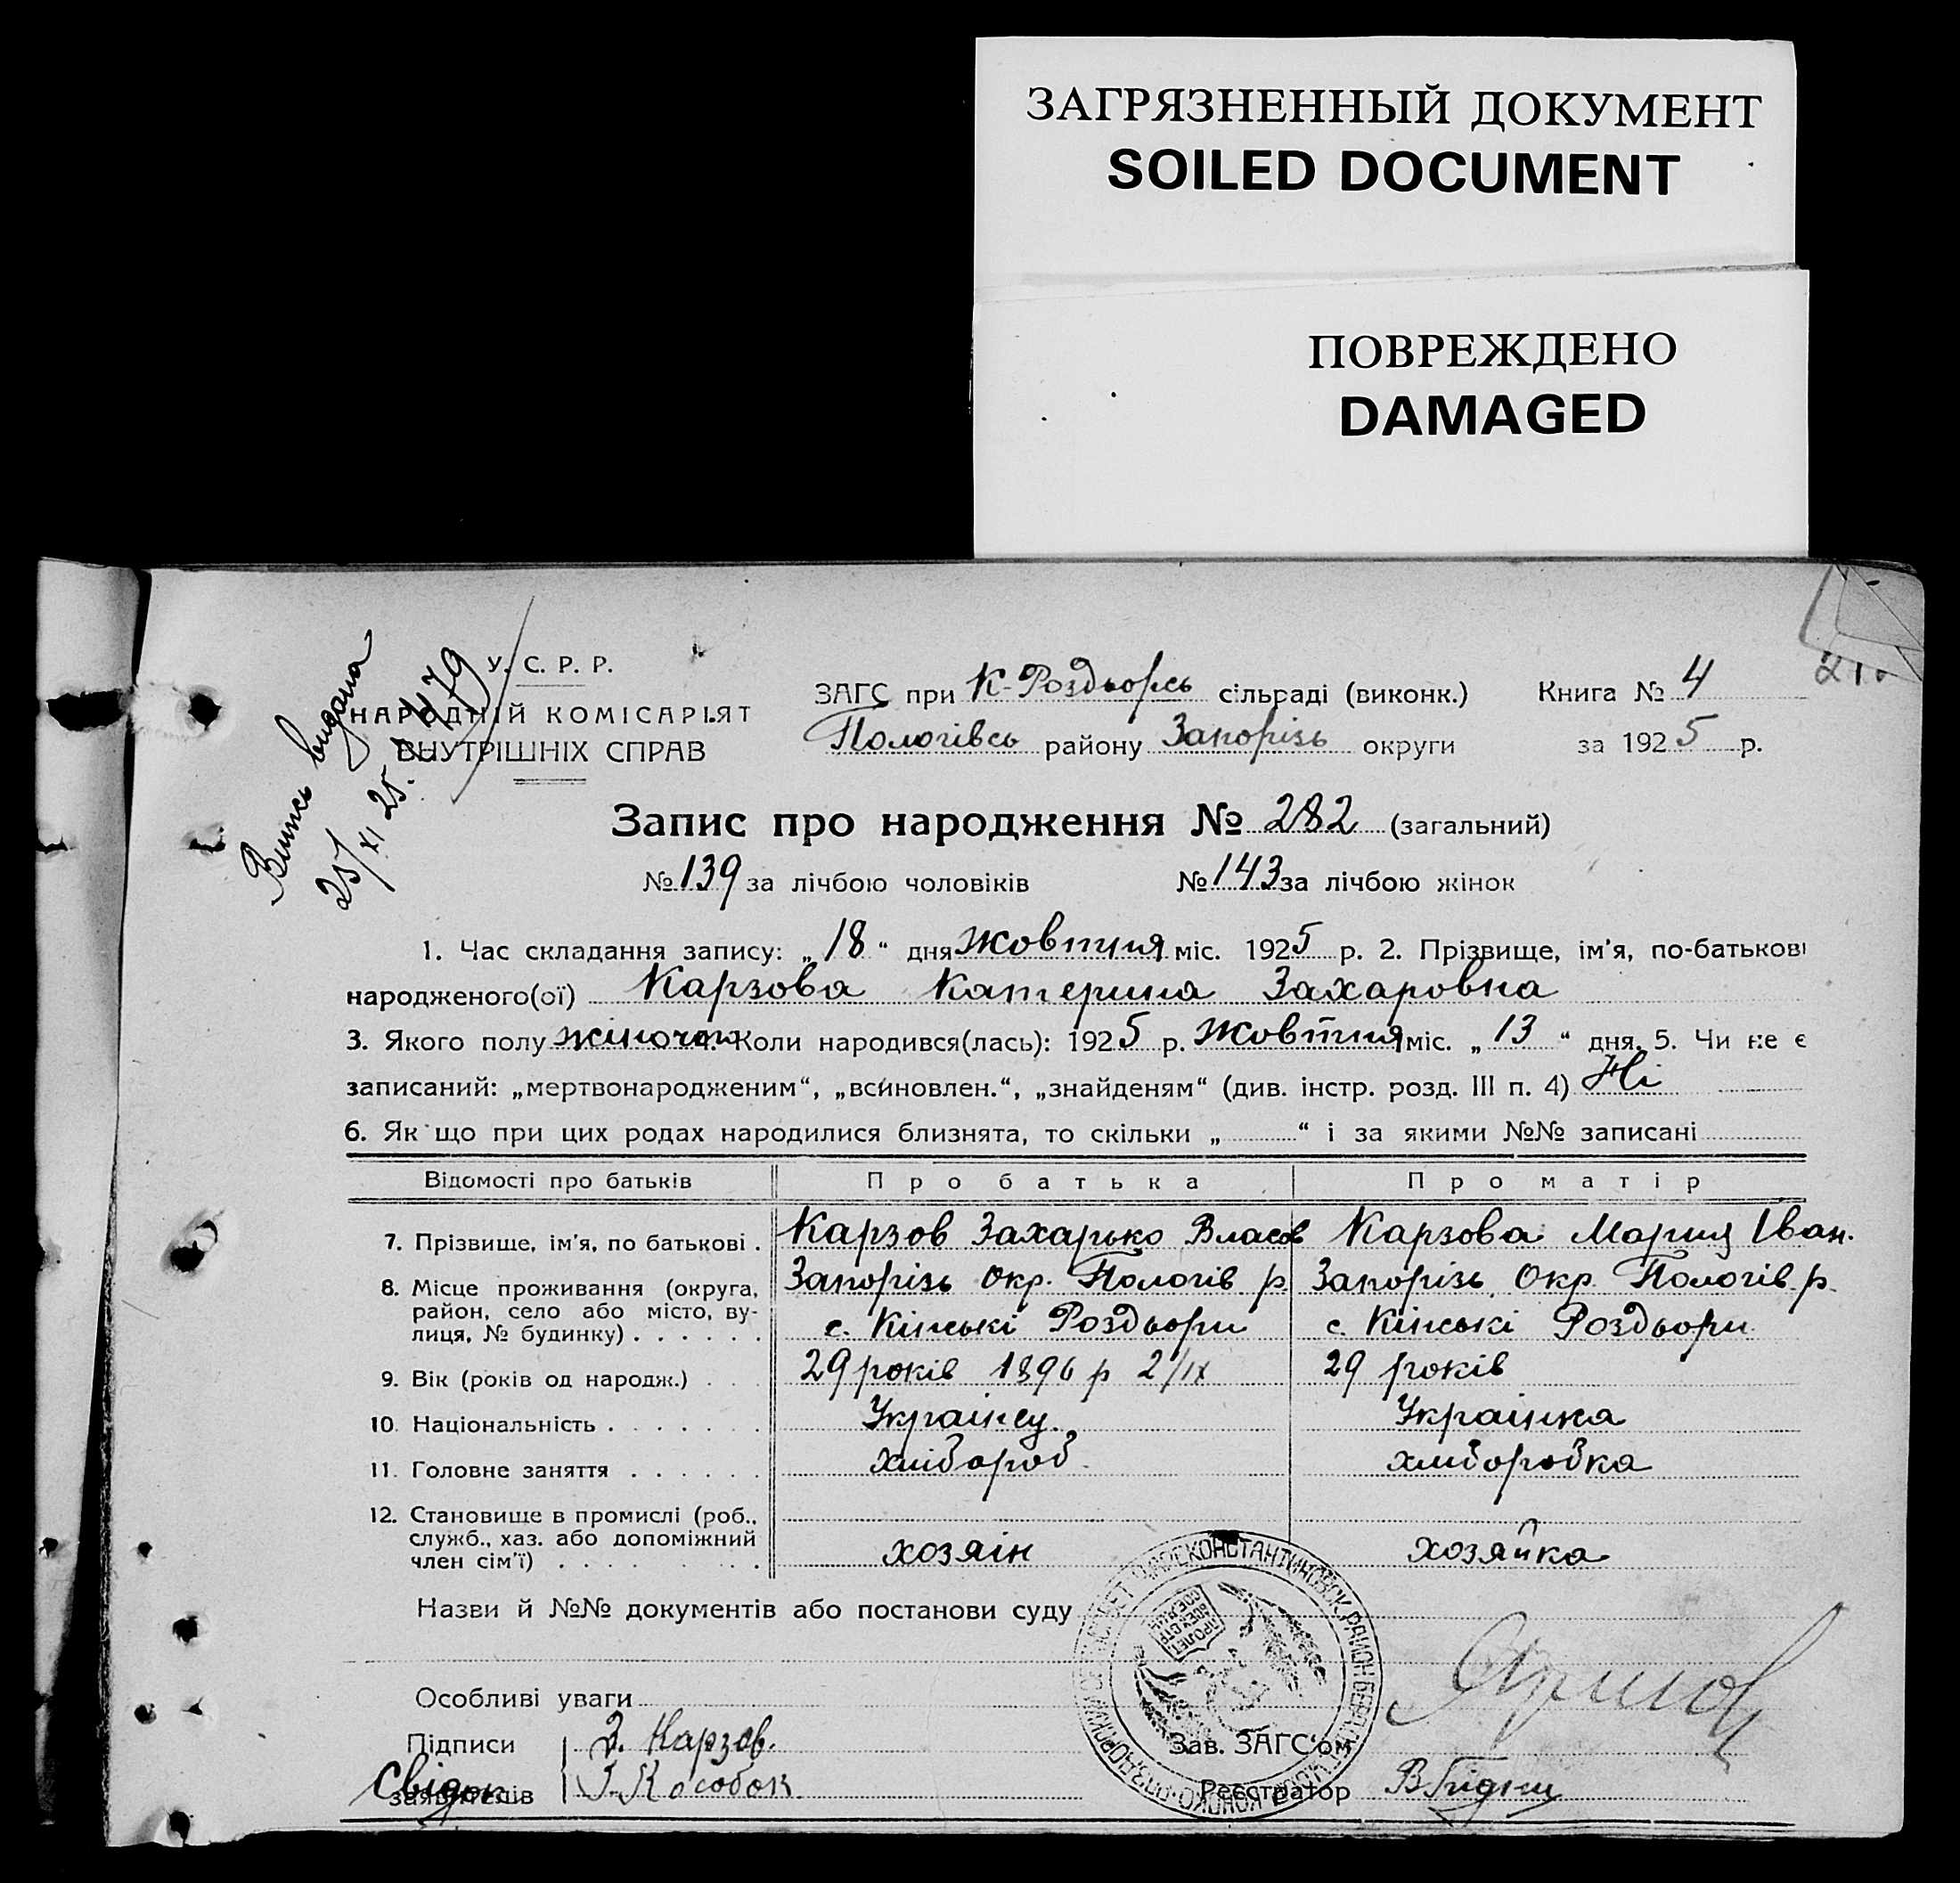 ЗАГРЯЗНЕННЫЙ ДОКУМЕНТ
SOILED DOCUMENT
ПОВРЕЖДЕНО
DAMAGED
Випись видана
25/XI 25. № 479
У. С. Р. Р.
НАРОДНІЙ КОМІСАРІЯТ
ВНУТРІШНІХ СПРАВ
ЗАГС при К-Роздорсь сільраді (виконк.) Книга № 4
Пологівсь району Запорізь округи за 1925 р.
Запис про народження № 282 (загальний)
№ 139 за лічбою чоловіків № 143 за лічбою жінок
1. Час складання запису: „18“ дня жовтня міс. 1925 р. 2. Прізвище, ім'я, по-батькові
народженого(ої) Карзова Катерина Захаровна
3. Якого полу жіночок 4. Коли народився(лась): 1925 р. Жовтня міс. „13“ дня. 5. Чи не є
записаний: „мертвонародженим“, „всиновлен.“, „знайденям“ (див. інстр. розд. III п. 4) Ні
6. Як що при цих родах народилися близнята, то скільки „ “ і за якими №№ записані
Відомості про батьків Про батька Про матір
7. Прізвище, ім'я, по батькові . Карзов Захарько Власов Карзова Мария Іван.
8. Місце проживання (округа, Запорізь Окр. Пологів р. Запорізь. Окр. Пологів. р.
район, село або місто, ву-
лиця, № будинку) . . . . . . с. Кінські Роздори с. Кінські Роздори
9. Вік (років од народж.) . . . 29 років 1896 р 2/IX 29 років
10. Національність . . . . . . . Українец. Українка
11. Головне заняття . . . . . . хлібороб хліборобка
12. Становище в промислі (роб.,
служб., хаз. або допоміжний
член сім'ї) . . . . . . . . . хозяін хозяйка
Назви й №№ документів або постанови суду
Особливі уваги
Підписи З. Карзов.
Свідок
заявителів Г. Кособок
Зав. ЗАГС'ом
Реєстратор
ПРОЛЕТ. ВСЕХ СТР. СОЕДИН.